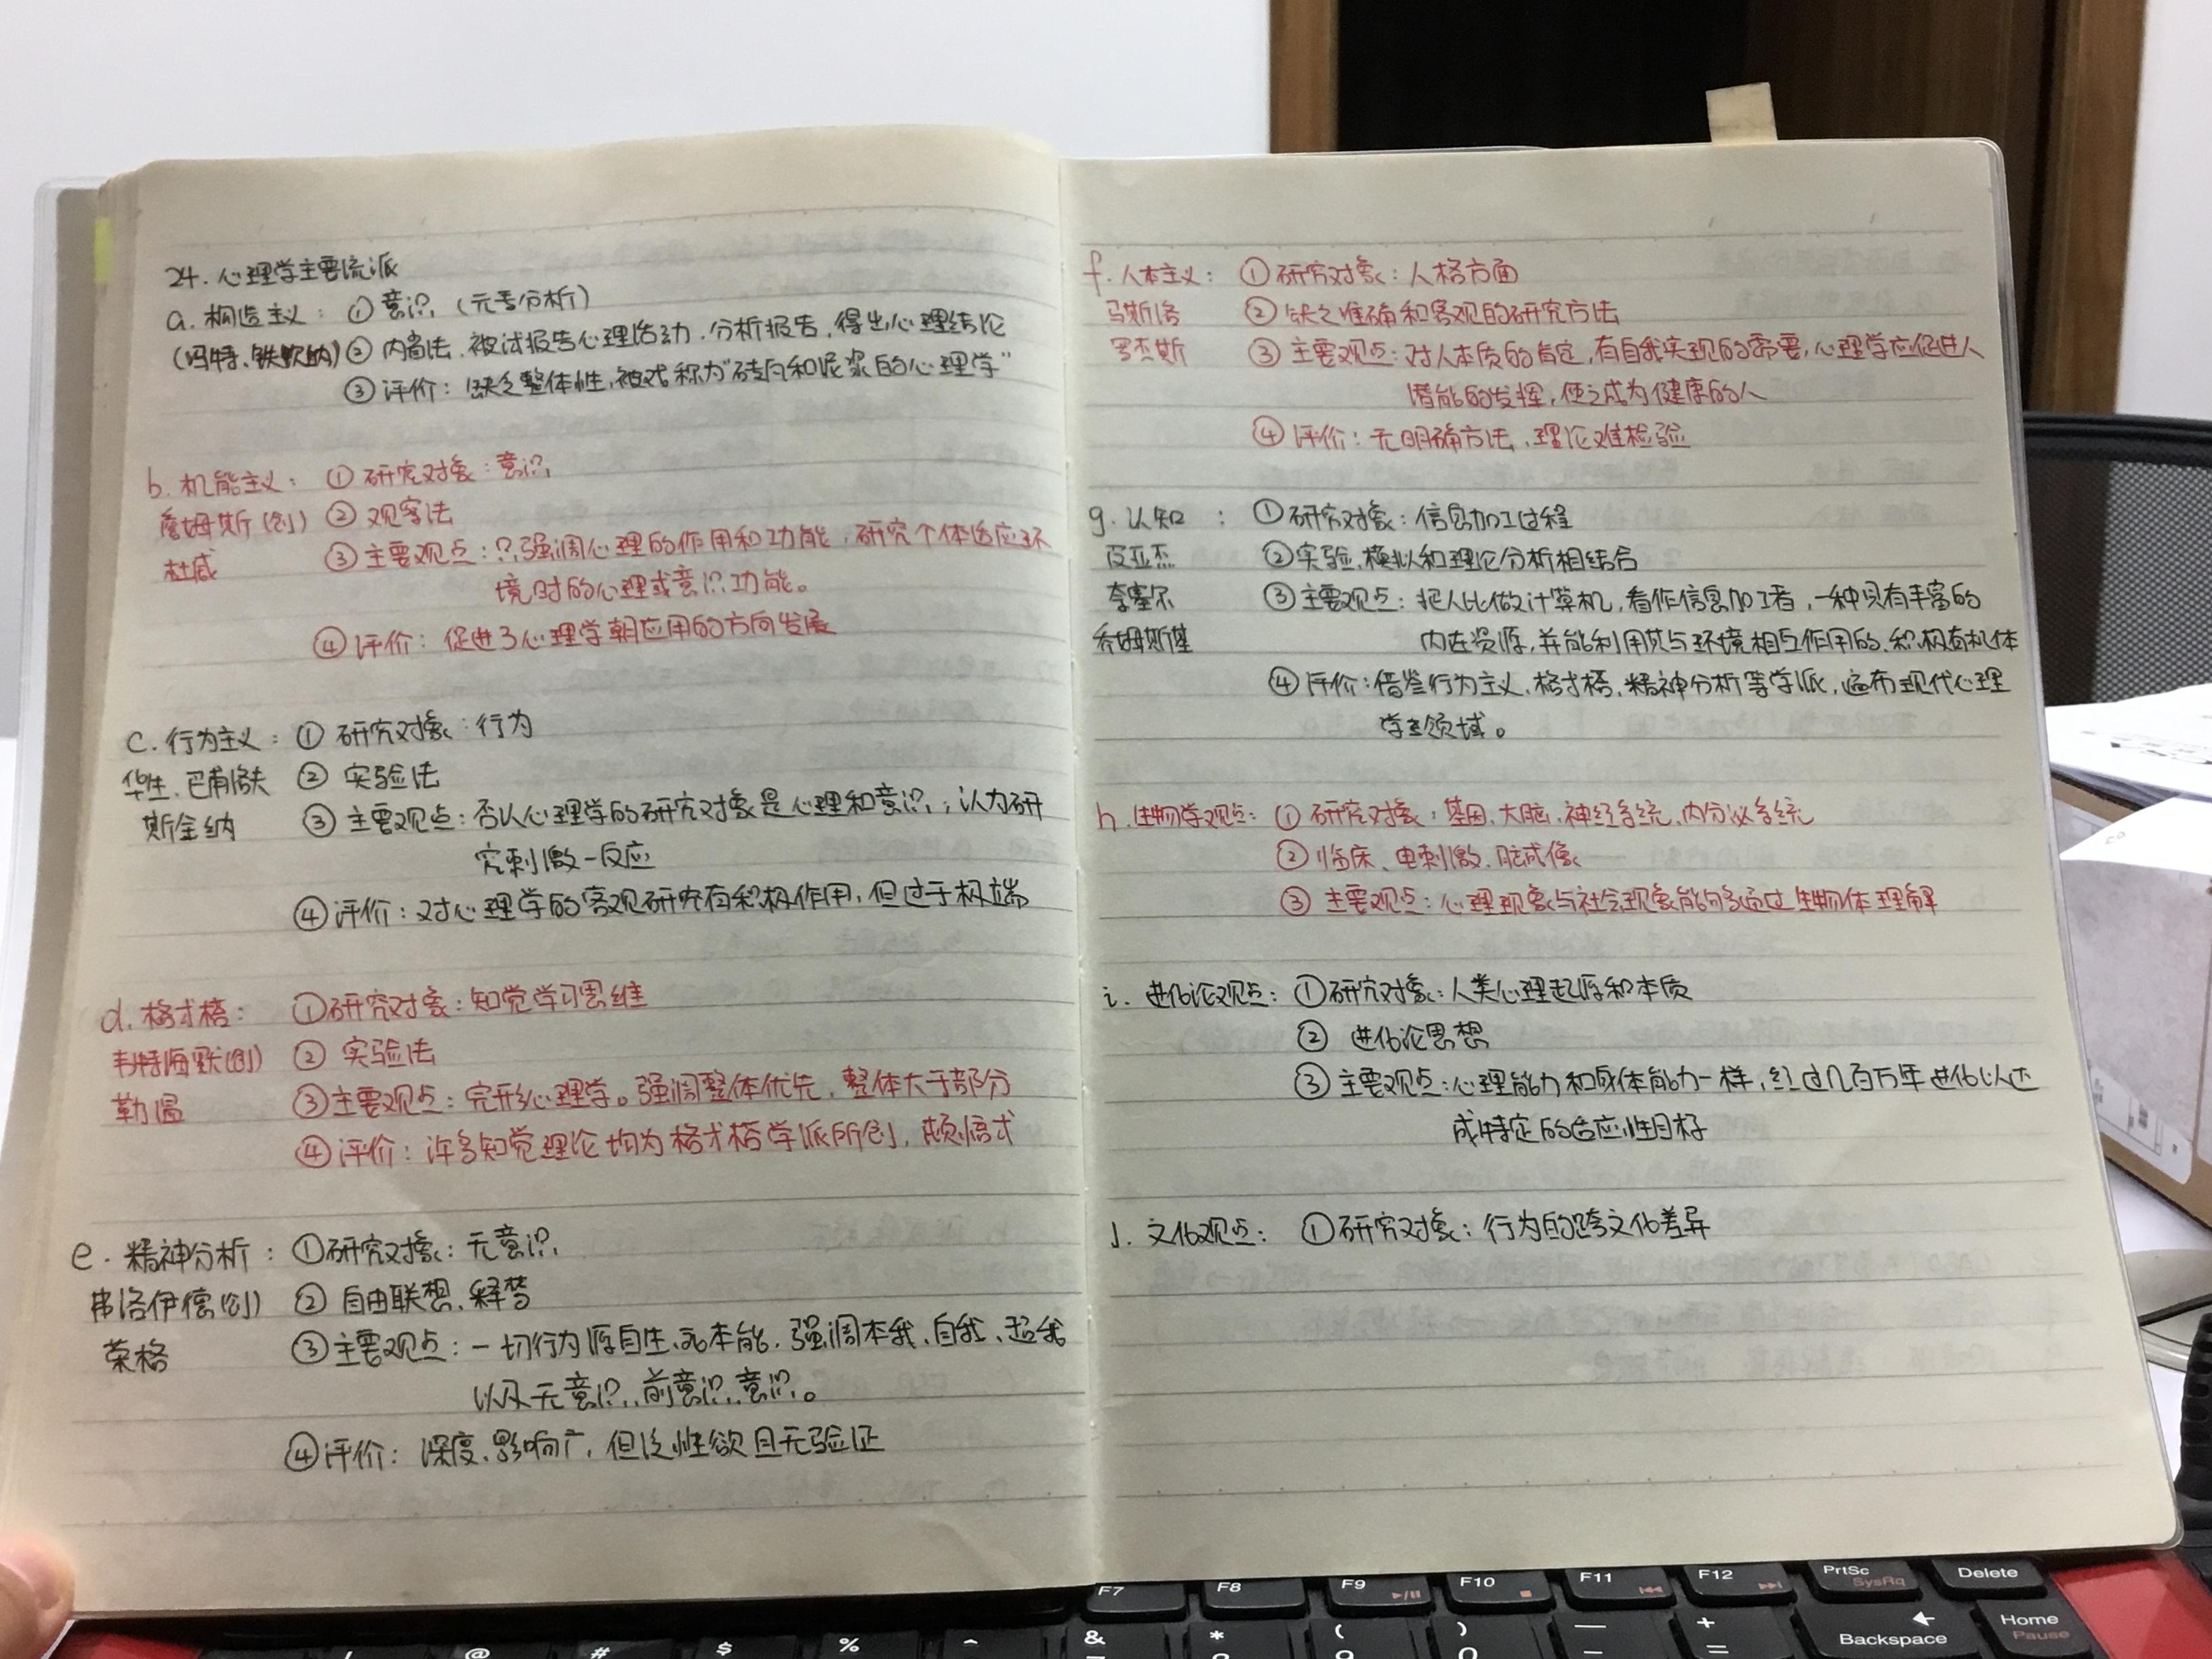 24. 心理学主要流派
a. 构造主义： ① 意识 (元素分析)
(冯特、铁钦纳) ② 内省法、被试报告心理活动，分析报告，得出心理结论
③ 评价：缺乏整体性，被戏称为"砖块和泥浆的心理学"
b. 机能主义： ① 研究对象：意识
詹姆斯(创) ② 观察法
杜威 ③ 主要观点：强调心理的作用和功能，研究个体适应环
境时的心理或意识功能。
④ 评价：促进了心理学朝应用的方向发展
c. 行为主义： ① 研究对象：行为
华生、巴甫洛夫 ② 实验法
斯金纳 ③ 主要观点：否认心理学的研究对象是心理和意识；认为研
究刺激-反应
④ 评价：对心理学的客观研究有积极作用，但过于极端
d. 格式塔： ① 研究对象：知觉学习思维
韦特海默(创) ② 实验法
勒温 ③ 主要观点：完形心理学。强调整体优先，整体大于部分
④ 评价：许多知觉理论均为格式塔学派所创，顿悟式
e. 精神分析： ① 研究对象：无意识
弗洛伊德(创) ② 自由联想、释梦
荣格 ③ 主要观点：一切行为源自生、死本能，强调本我、自我、超我
以及无意识、前意识、意识。
④ 评价：深度、影响广，但泛性欲且无验证
f. 人本主义： ① 研究对象：人格方面
马斯洛 ② 缺乏准确和客观的研究方法
罗杰斯 ③ 主要观点：对人本质的肯定，有自我实现的需要，心理学应促进人
潜能的发挥，使之成为健康的人
④ 评价：无明确方法，理论难检验
g. 认知： ① 研究对象：信息加工过程
皮亚杰 ② 实验、模拟和理论分析相结合
奈塞尔 ③ 主要观点：把人比做计算机，看作信息加工者，一种具有丰富的
乔姆斯基 内在资源，并能利用其与环境相互作用的、积极有机体
④ 评价：借鉴行为主义、格式塔、精神分析等学派，遍布现代心理
学主领域。
h. 生物学观点： ① 研究对象：基因、大脑、神经系统、内分泌系统
② 临床、电刺激、脑成像
③ 主要观点：心理现象与社会现象能够通过生物体理解
i. 进化论观点： ① 研究对象：人类心理起源和本质
② 进化论思想
③ 主要观点：心理能力和身体能力一样，经过几百万年进化以达
成特定的适应性目标
J. 文化观点： ① 研究对象：行为的跨文化差异
F7 F8 F9 F10 F11 F12 PrtSc SysRq Delete
@ # $ % ^ & * ( ) — + = Backspace Home Pause